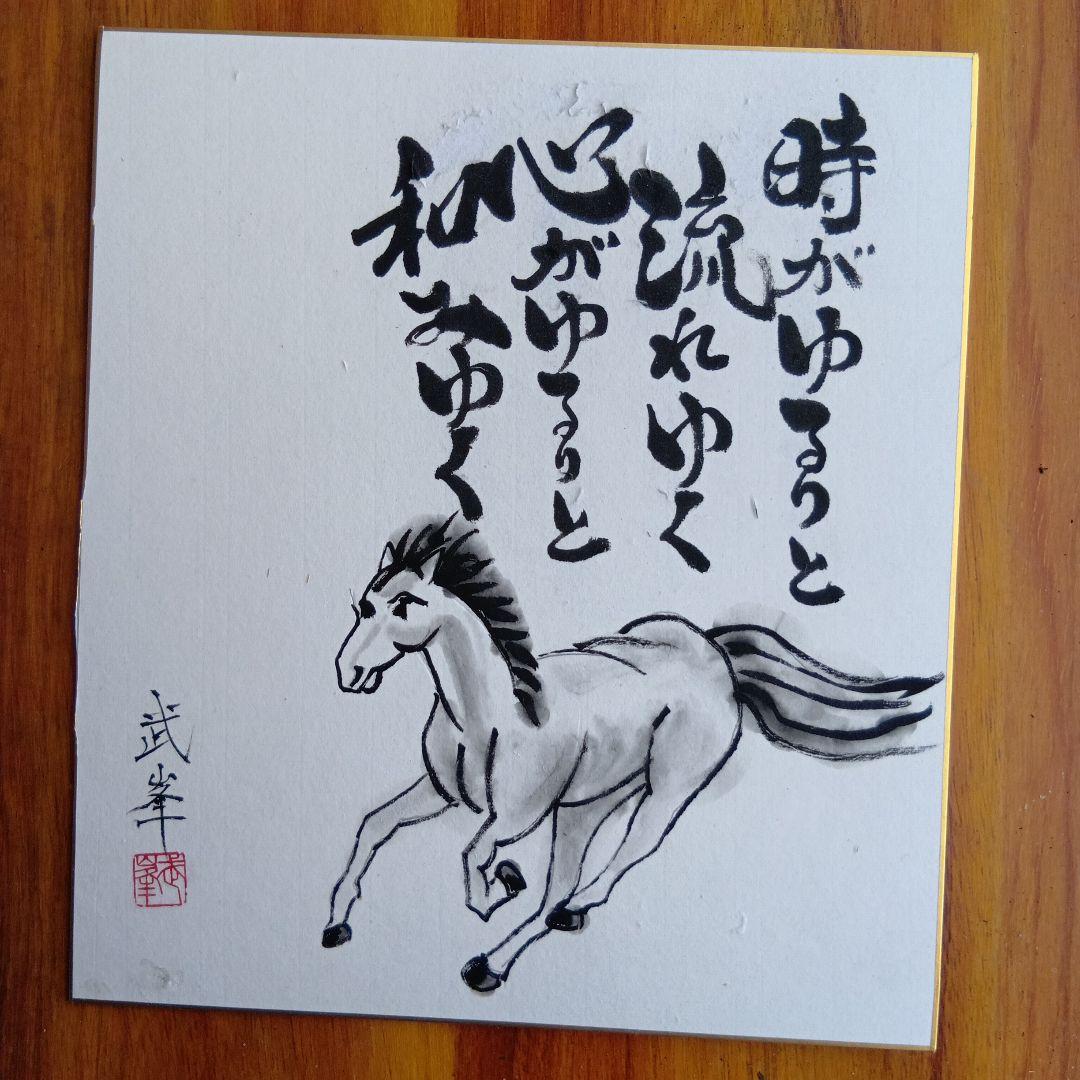 時がゆるりと
流れゆく
心がゆるりと
和みゆく
武峯